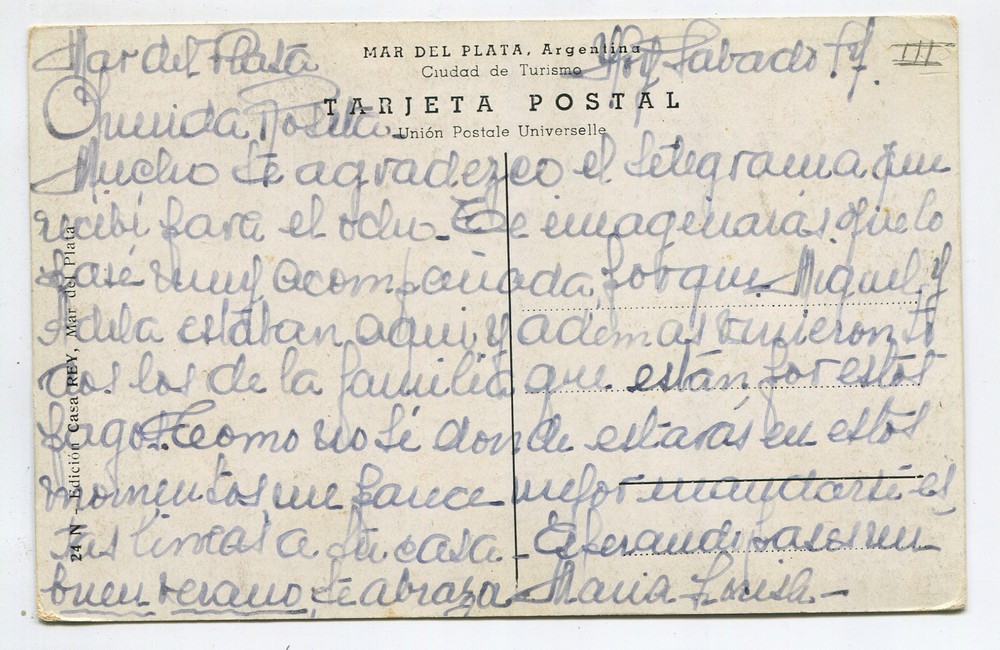 MAR DEL PLATA, Argentina
Ciudad de Turismo
TARJETA POSTAL
Unión Postale Universelle
24 N - Edición Casa REY, Mar del Plata
Mar del Plata Hoy Sabado
Querida Rosita
Mucho te agradezco el telegrama que
recibí para el ocho. Te imaginarás que lo
pasé muy acompañada, porque Miguel y
Adela estaban aqui, y además vinieron to
dos los de la familia que están por estos
pagos. Como no sé donde estarás en estos
momentos me parece mejor mandarte es
tas lineas a tu casa. Esperando pases un
buen verano, te abraza Maria Luisa.-